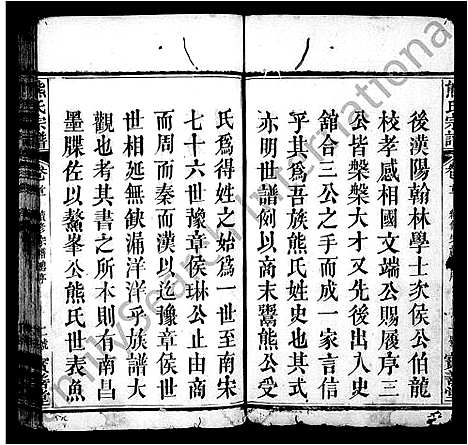 熊氏宗譜
後漢陽翰林學士次侯公伯龍
校孝感相國文端公賜履序三
公皆槃槃大才又先後出入史
館合三公之手而成一家言信
乎其式為吾族熊氏姓史也其
亦明世譜例以商末鬻熊公受
氏為得姓之始為一世至南宋
七十六世豫章侯琳公止由商
而周而秦而漢以迄豫章侯世
世相延無缺漏洋洋乎族譜大
觀也考其書之所本則有南昌
墨牒佐以鰲峯公熊氏世表魚
熊氏宗譜
卷首
寶善堂
FamilySearch International